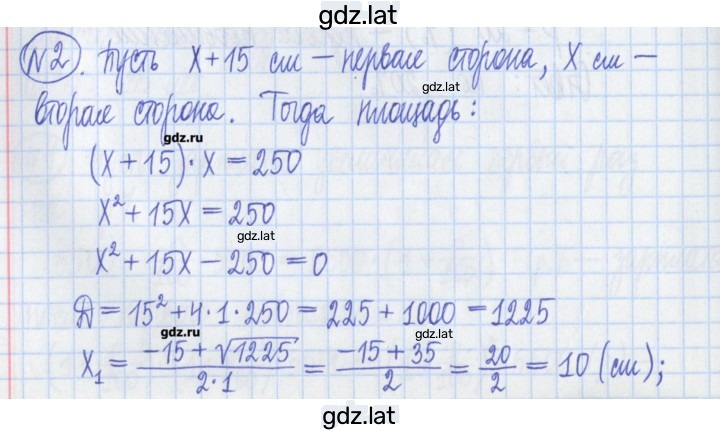 gdz.lat
№2. Пусть x+15 см – первая сторона, x см –
вторая сторона. Тогда площадь:
gdz.ru
(x+15)·x=250
x²+15x=250
gdz.lat
x²+15x–250=0
D=15²+4·1·250=225+1000=1225
gdz.ru
x₁ = (–15+√1225)/(2·1) = (–15+35)/2 = 20/2 = 10 (см);
gdz.lat
gdz.lat